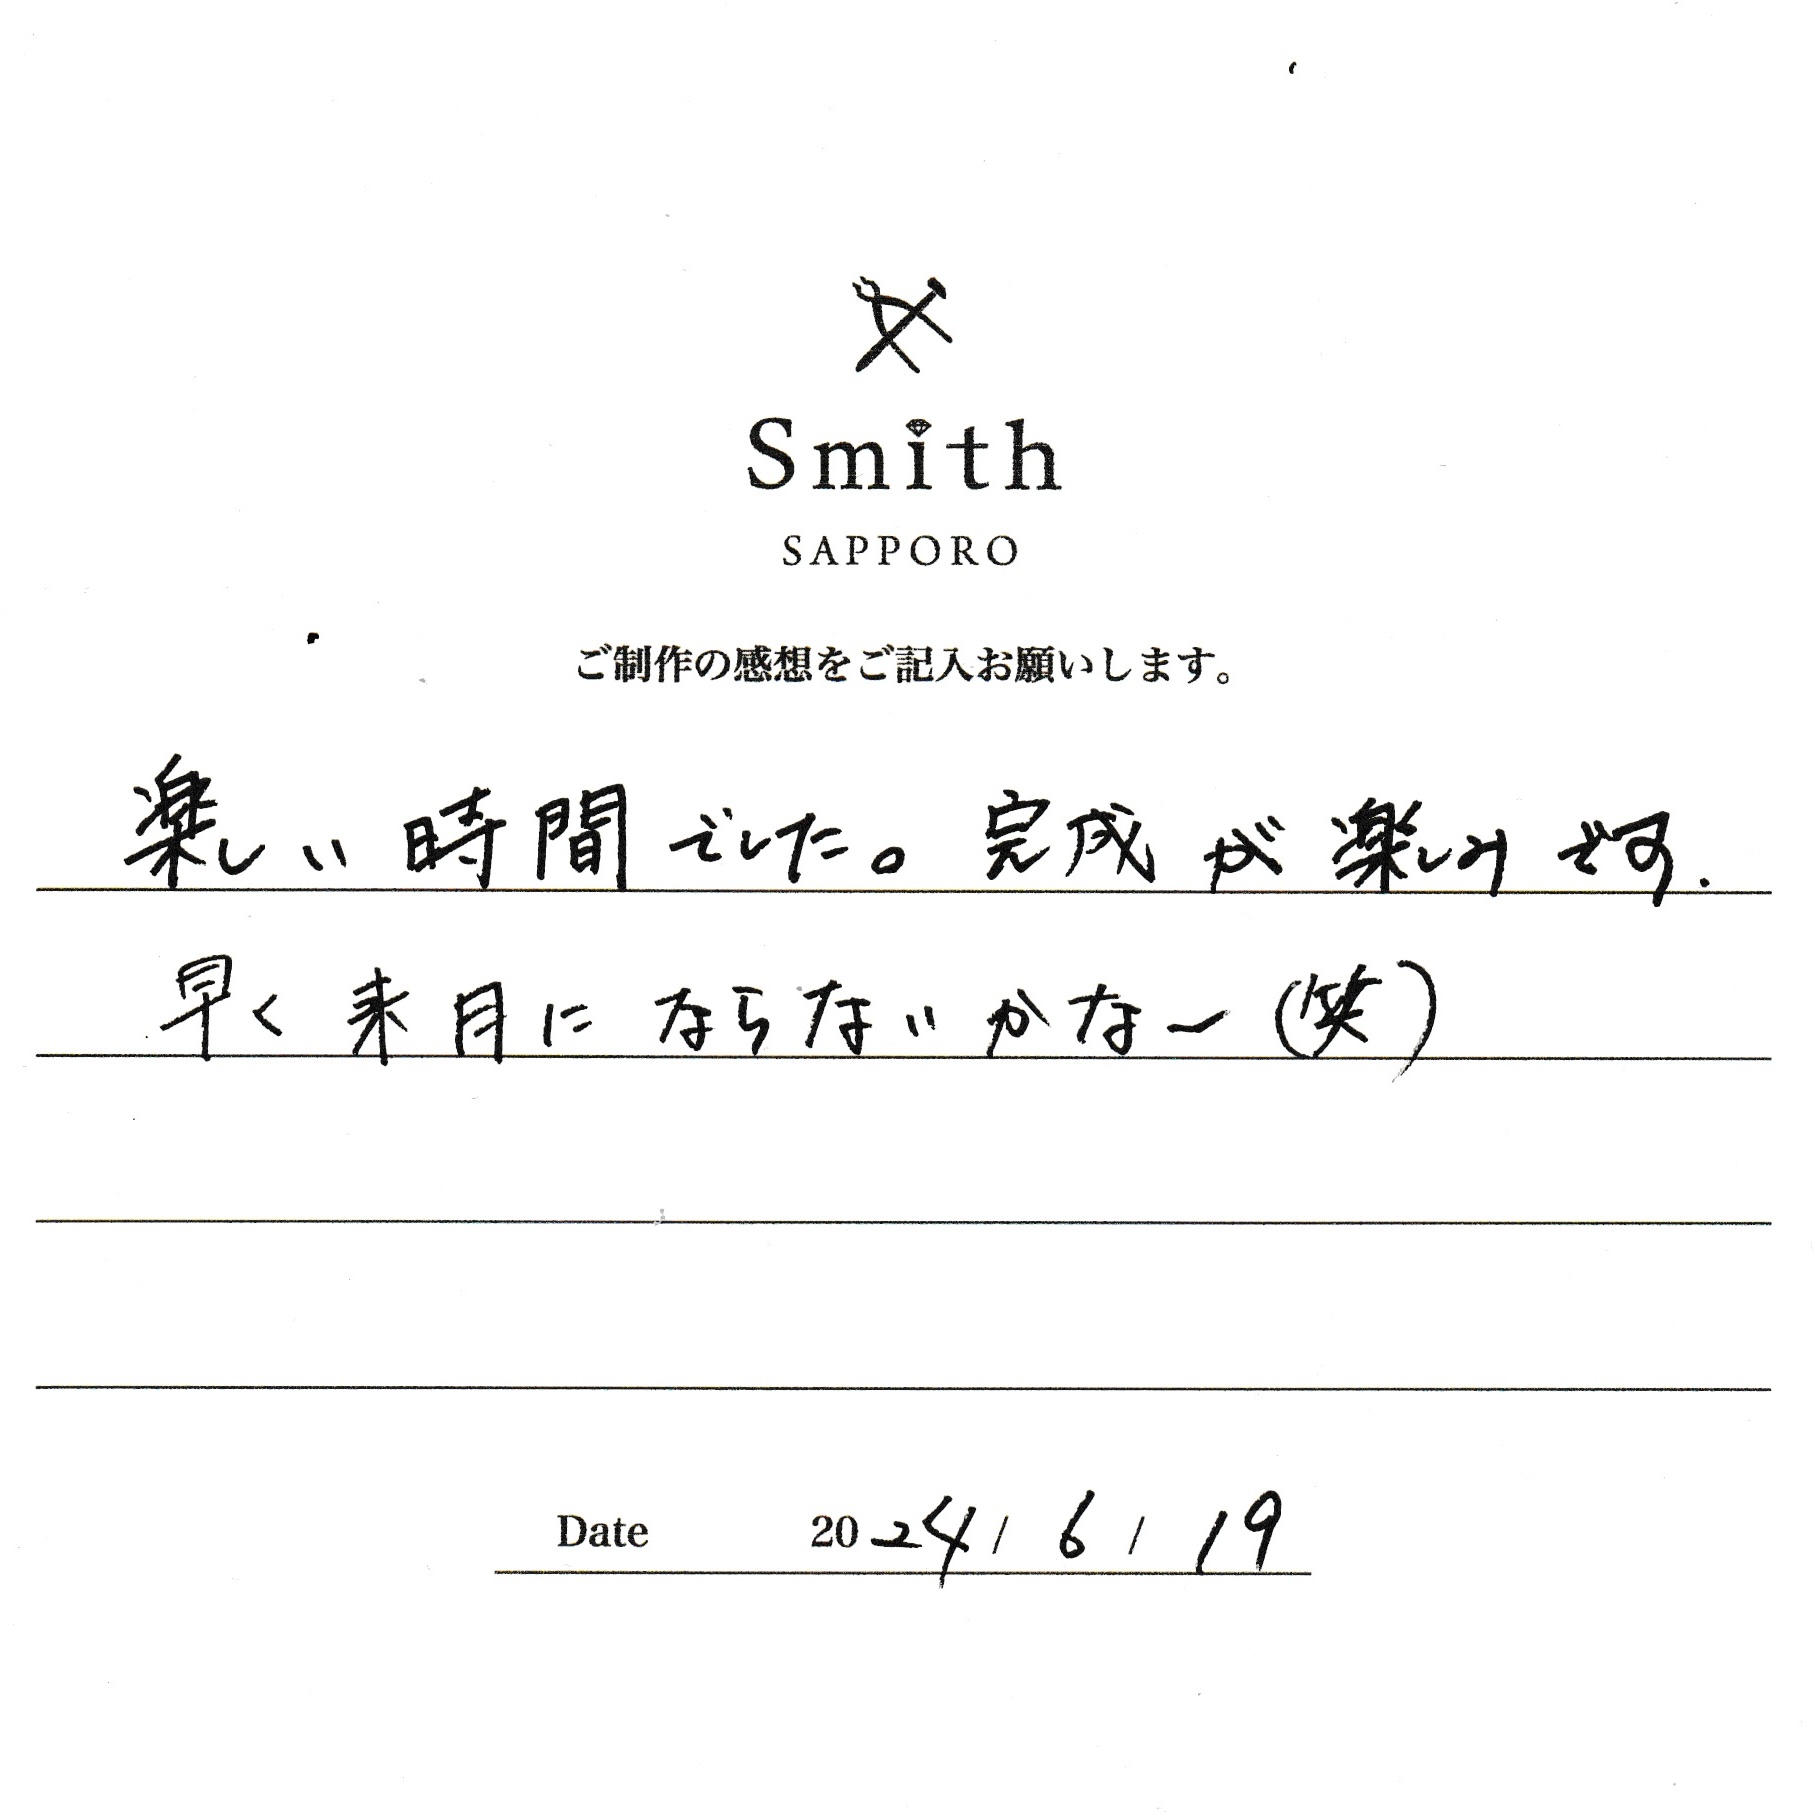 Smith
SAPPORO
ご制作の感想をご記入お願いします。
楽しい時間でした。完成が楽しみです.
早く来月にならないかなー(笑)
Date 2024/6/19